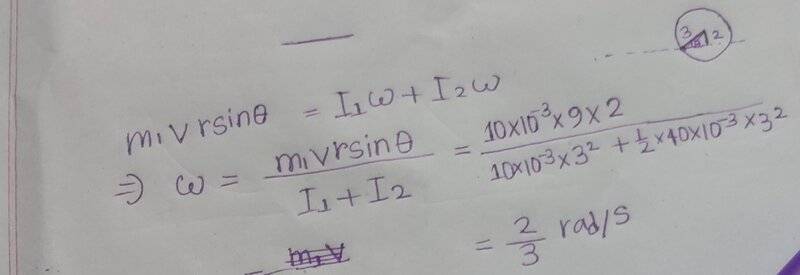 3 2
m₁vrsinθ = I₁ω + I₂ω
⇒ ω = m₁vrsinθ / I₁+I₂ = 10×10⁻³×9×2 / 10×10⁻³×3² + 1/2×40×10⁻³×3²
m₁v = 2/3 rad/s